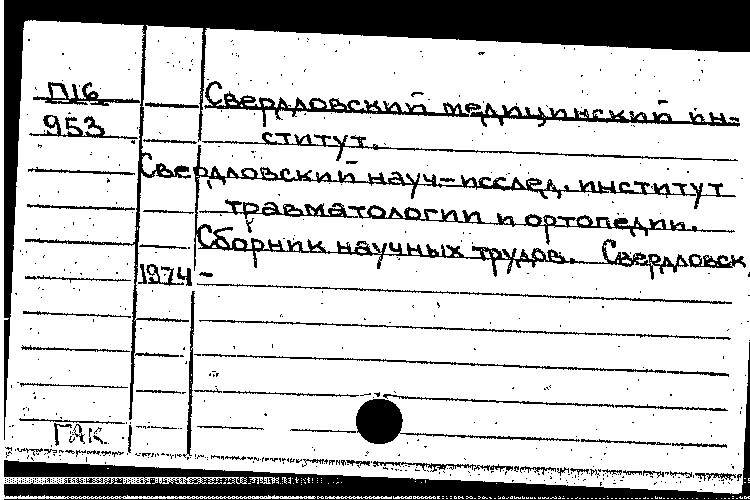 П16
953
Свердловский медицинский ин-
ститут.
Свердловский науч-исслед. институт
травматологии и ортопедии.
Сборник научных трудов. Свердловск
1974 -